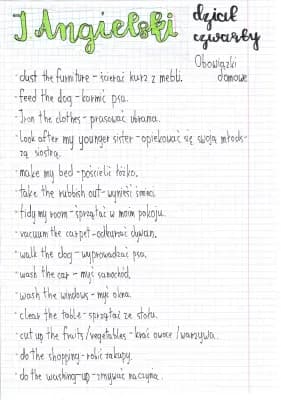 J Angielski
dział
czwarty
Obowiązki
domowe
· dust the furniture - ścierać kurz z mebli.
· feed the dog - karmić psa.
· Iron the clothes - prasować ubrania.
· look after my younger sister - opiekować się swoją młod-
szą siostrą.
· make my bed - pościelić łóżko.
· take the rubbish out - wynieść śmieci.
· tidy my room - sprzątać w moim pokoju.
· vacuum the carpet - odkurzać dywan.
· walk the dog - wyprowadzać psa.
· wash the car - myć samochód.
· wash the windows - myć okna.
· clear the table - sprzątać ze stołu.
· cut up the fruits/vegetables - kroić owoce/warzywa.
· do the shopping - robić zakupy.
· do the washing-up - zmywać naczynia.